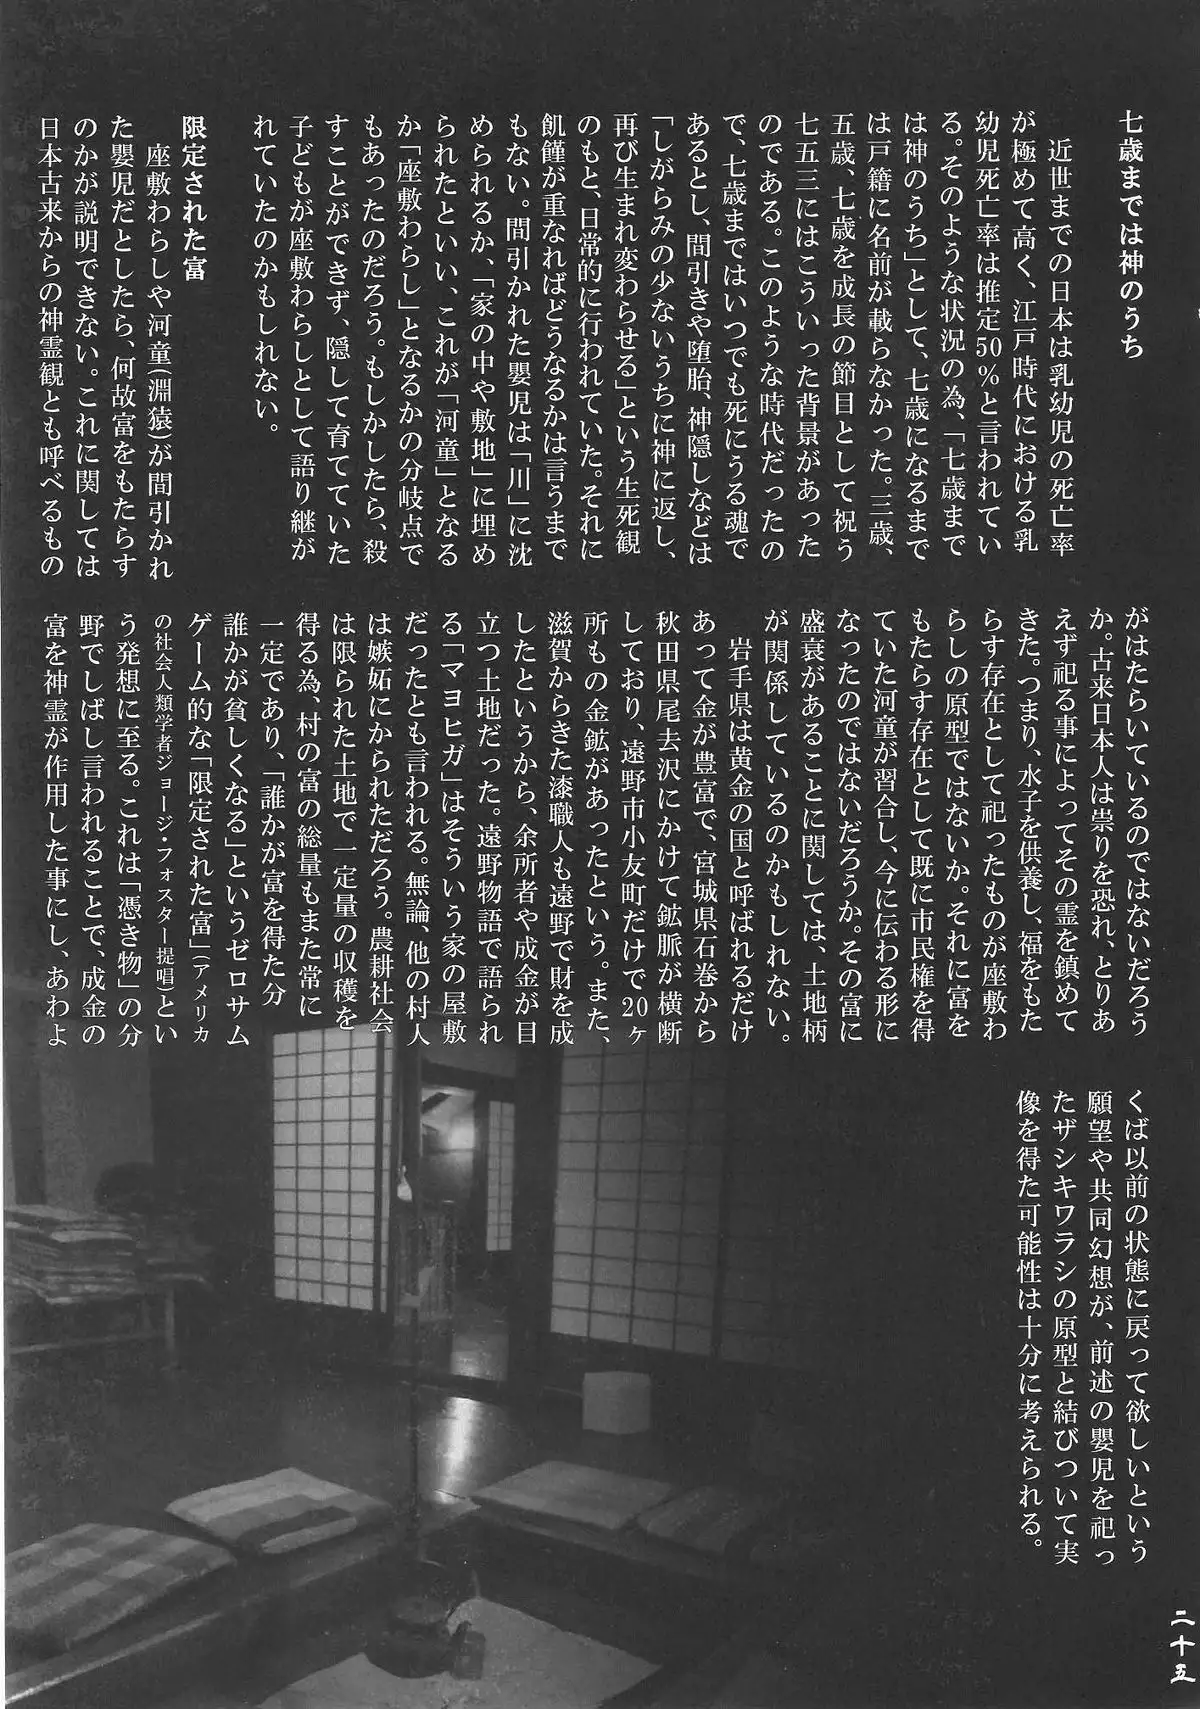 七歳までは神のうち
近世までの日本は乳幼児の死亡率
が極めて高く、江戸時代における乳
幼児死亡率は推定50%と言われてい
る。そのような状況の為、「七歳まで
は神のうち」として、七歳になるまで
は戸籍に名前が載らなかった。三歳、
五歳、七歳を成長の節目として祝う
七五三にはこういった背景があった
のである。このような時代だったの
で、七歳まではいつでも死にうる魂で
あるとし、間引きや堕胎、神隠しなどは
「しがらみの少ないうちに神に返し、
再び生まれ変わらせる」という生死観
のもと、日常的に行われていた。それに
飢饉が重なればどうなるかは言うまで
もない。間引かれた嬰児は「川」に沈
められるか、「家の中や敷地」に埋め
られたといい、これが「河童」となる
か「座敷わらし」となるかの分岐点で
もあったのだろう。もしかしたら、殺
すことができず、隠して育てていた
子どもが座敷わらしとして語り継が
れていたのかもしれない。
限定された富
座敷わらしや河童(淵猿)が間引かれ
た嬰児だとしたら、何故富をもたらす
のかが説明できない。これに関しては
日本古来からの神霊観とも呼べるもの
がはたらいているのではないだろう
か。古来日本人は祟りを恐れ、とりあ
えず祀る事によってその霊を鎮めて
きた。つまり、水子を供養し、福をもた
らす存在として祀ったものが座敷わ
らしの原型ではないか。それに富を
もたらす存在として既に市民権を得
ていた河童が習合し、今に伝わる形に
なったのではないだろうか。その富に
盛衰があることに関しては、土地柄
が関係しているのかもしれない。
岩手県は黄金の国と呼ばれるだけ
あって金が豊富で、宮城県石巻から
秋田県尾去沢にかけて鉱脈が横断
しており、遠野市小友町だけで20ヶ
所もの金鉱があったという。また、
滋賀からきた漆職人も遠野で財を成
したというから、余所者や成金が目
立つ土地だった。遠野物語で語られ
る「マヨヒガ」はそういう家の屋敷
だったとも言われる。無論、他の村人
は嫉妬にかられただろう。農耕社会
は限られた土地で一定量の収穫を
得る為、村の富の総量もまた常に
一定であり、「誰かが富を得た分
誰かが貧しくなる」というゼロサム
ゲーム的な「限定された富」(アメリカ
の社会人類学者ジョージ・フォスター提唱)とい
う発想に至る。これは「憑き物」の分
野でしばし言われることで、成金の
富を神霊が作用した事にし、あわよ
くば以前の状態に戻って欲しいという
願望や共同幻想が、前述の嬰児を祀っ
たザシキワラシの原型と結びついて実
像を得た可能性は十分に考えられる。
二十五